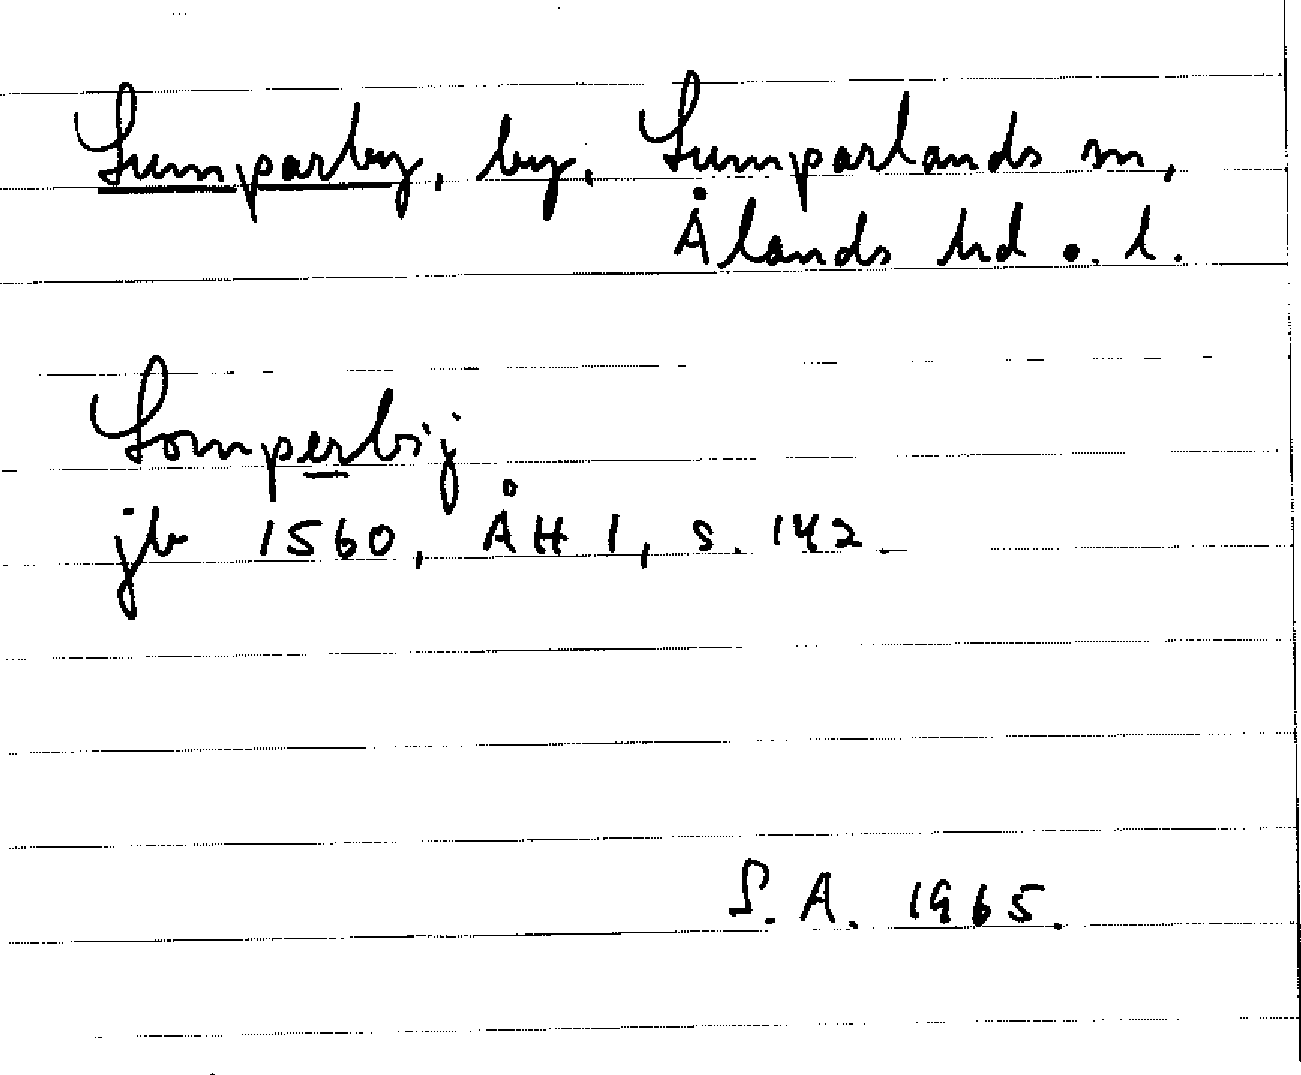 Lumparby, by, Lumparlands sn,
Ålands hd o. l.
Lomperbij
jb 1560, ÅH 1, s. 142.
S. A. 1965.